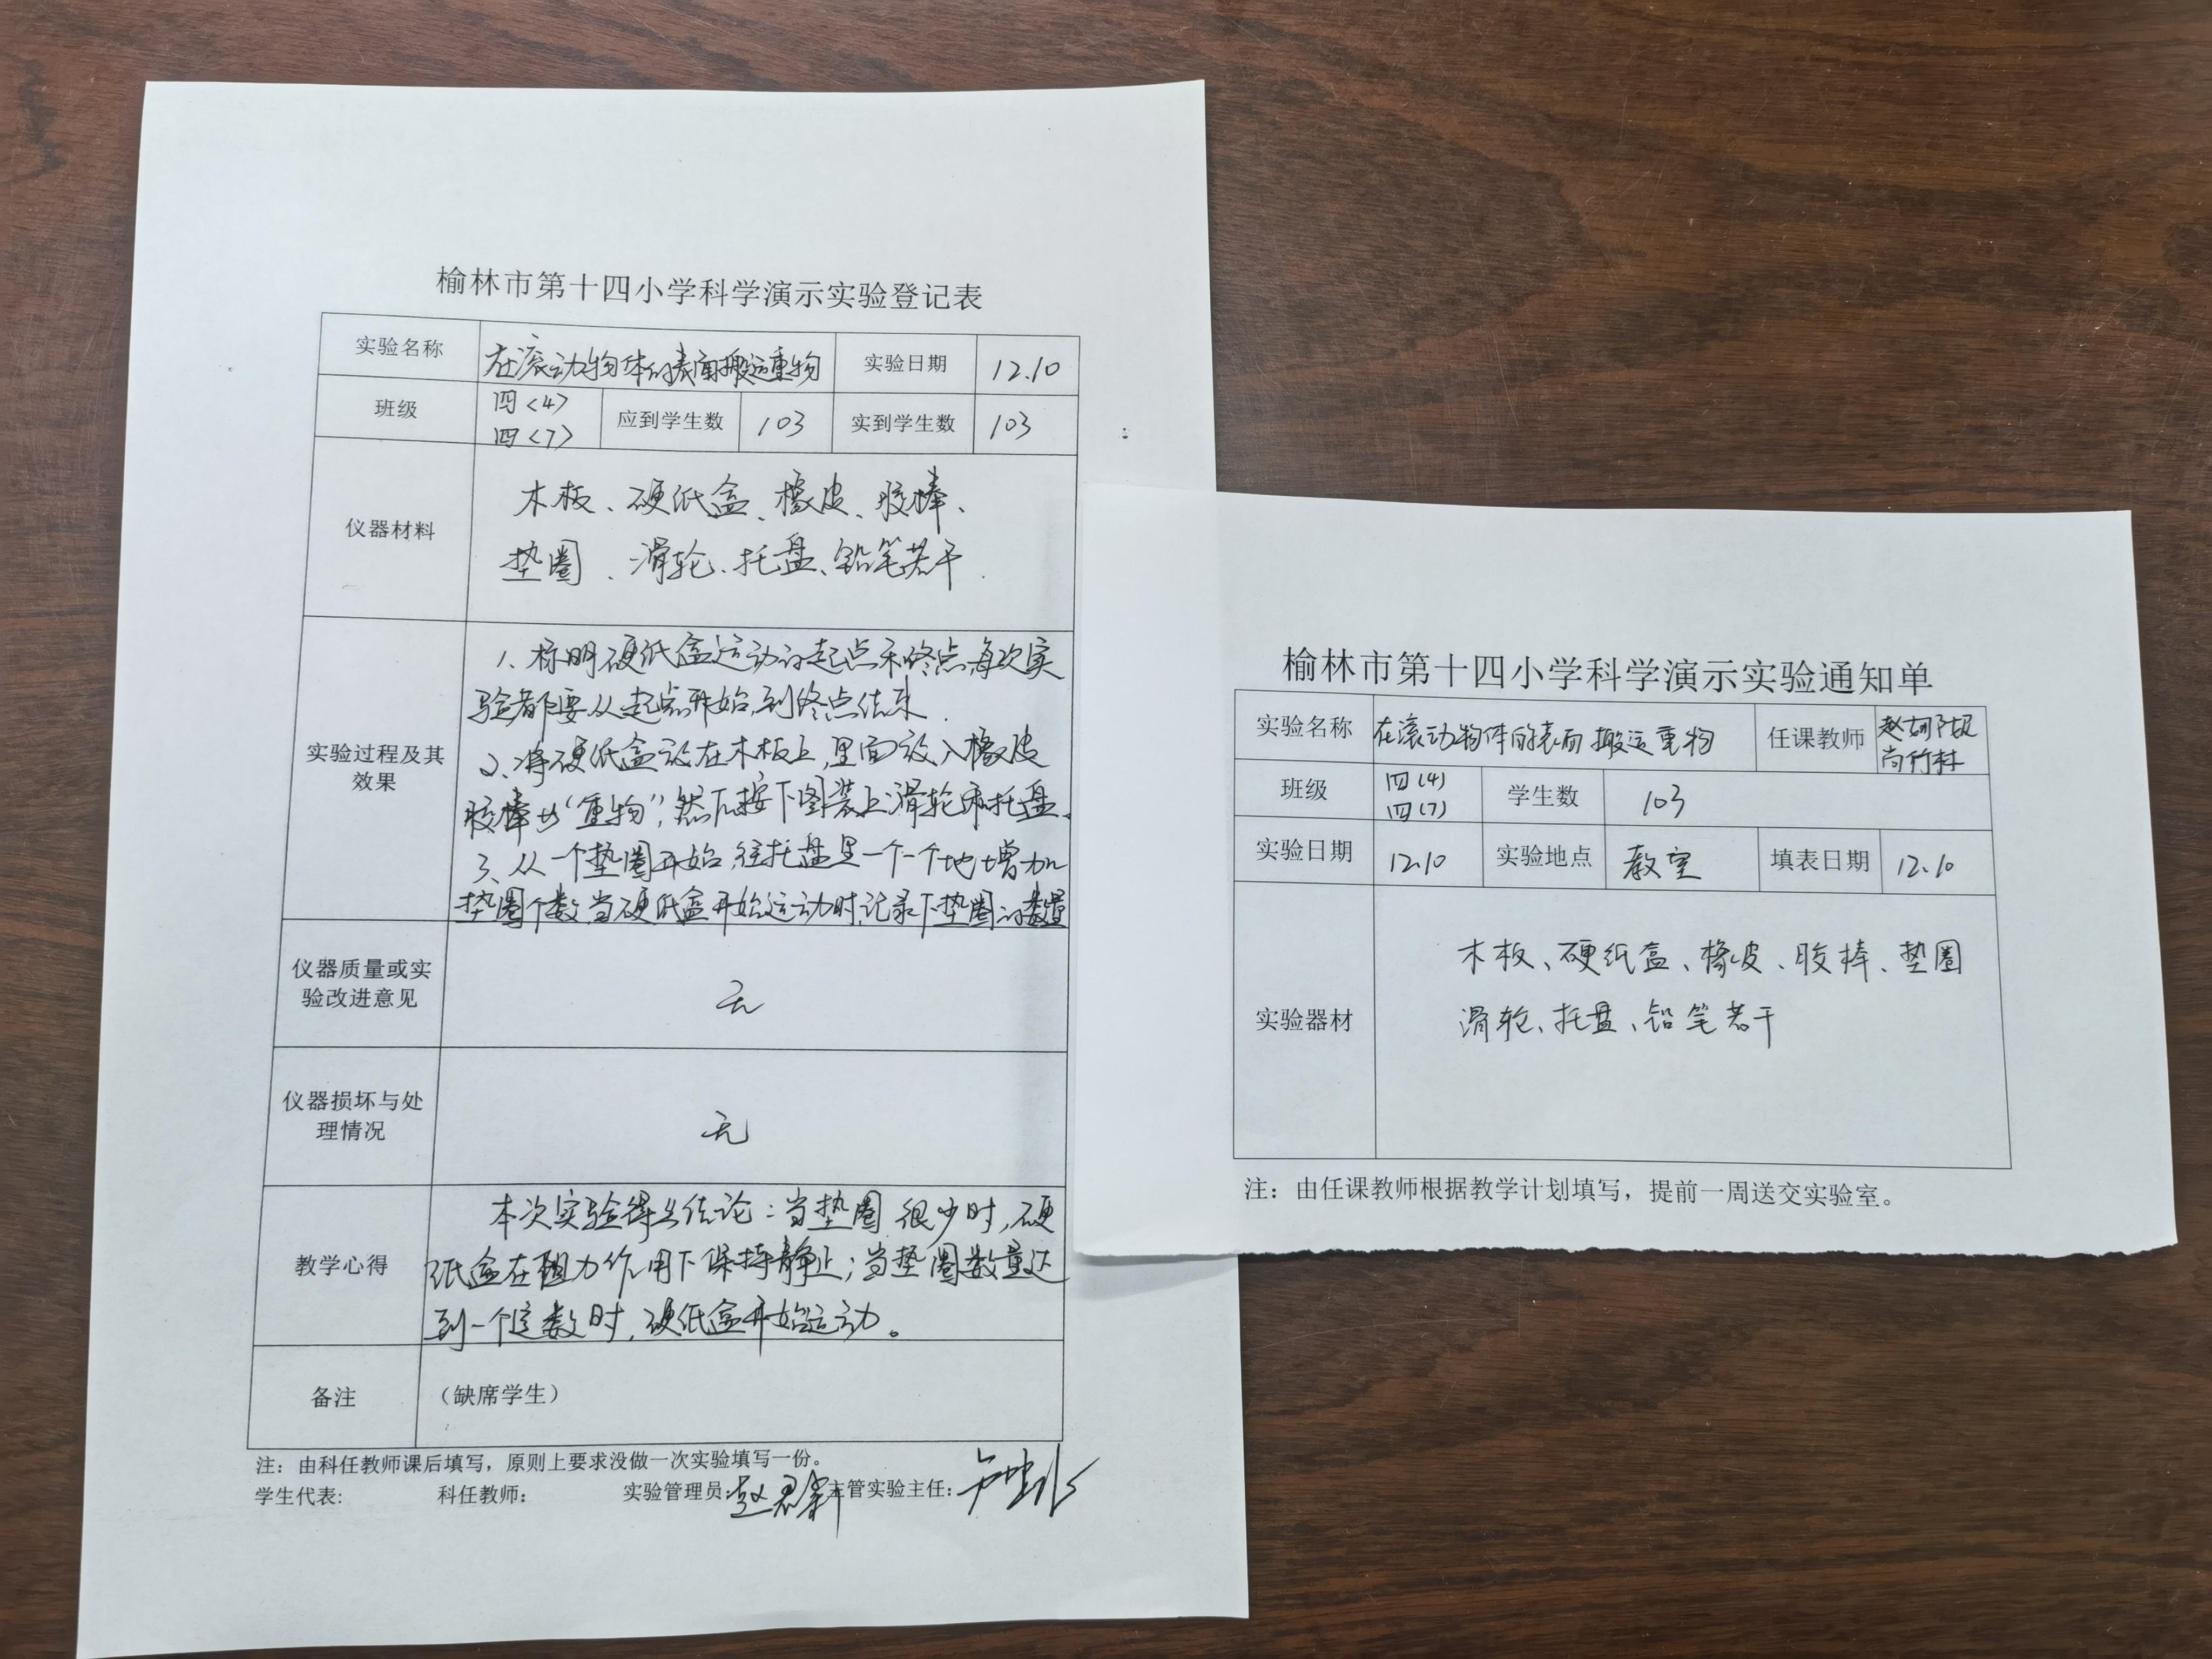 榆林市第十四小学科学演示实验登记表
实验名称 在滚动物体的表面搬运重物 实验日期 12.10
班级 四<4> 四<7> 应到学生数 103 实到学生数 103
仪器材料
木板、硬纸盒、橡皮、胶棒、
垫圈、滑轮、托盘、铅笔若干.
实验过程及其
效果
1、标明硬纸盒运动的起点和终点,每次实
验都要从起点开始,到终点结束.
2、将硬纸盒放在木板上,里面放入橡皮
胶棒等“重物”,然后按下图装上滑轮和托盘.
3、从一个垫圈开始,往托盘里一个一个地增加
垫圈个数,当硬纸盒开始运动时,记录下垫圈的数量
仪器质量或实
验改进意见
无
仪器损坏与处
理情况
无
教学心得
本次实验得出结论:当垫圈很少时,硬
纸盒在阻力作用下保持静止;当垫圈数量达
到一个定数时,硬纸盒开始运动。
备注 (缺席学生)
注:由科任教师课后填写,原则上要求没做一次实验填写一份。
学生代表: 科任教师: 实验管理员: 主管实验主任:
榆林市第十四小学科学演示实验通知单
实验名称 在滚动物体的表面搬运重物 任课教师 尚竹林
班级 四(4) 四(7) 学生数 103
实验日期 12.10 实验地点 教室 填表日期 12.10
实验器材
木板、硬纸盒、橡皮、胶棒、垫圈
滑轮、托盘、铅笔若干
注:由任课教师根据教学计划填写,提前一周送交实验室。